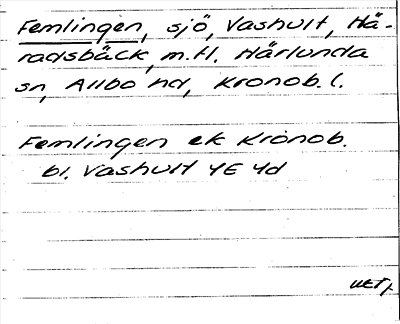 Femlingen, sjö, Vashult, Hä-
radsbäck, m.fl. Härlunda
sn, Allbo hd, Kronob. l.
Femlingen ek Kronob.
bl. Vashult 4E 4d